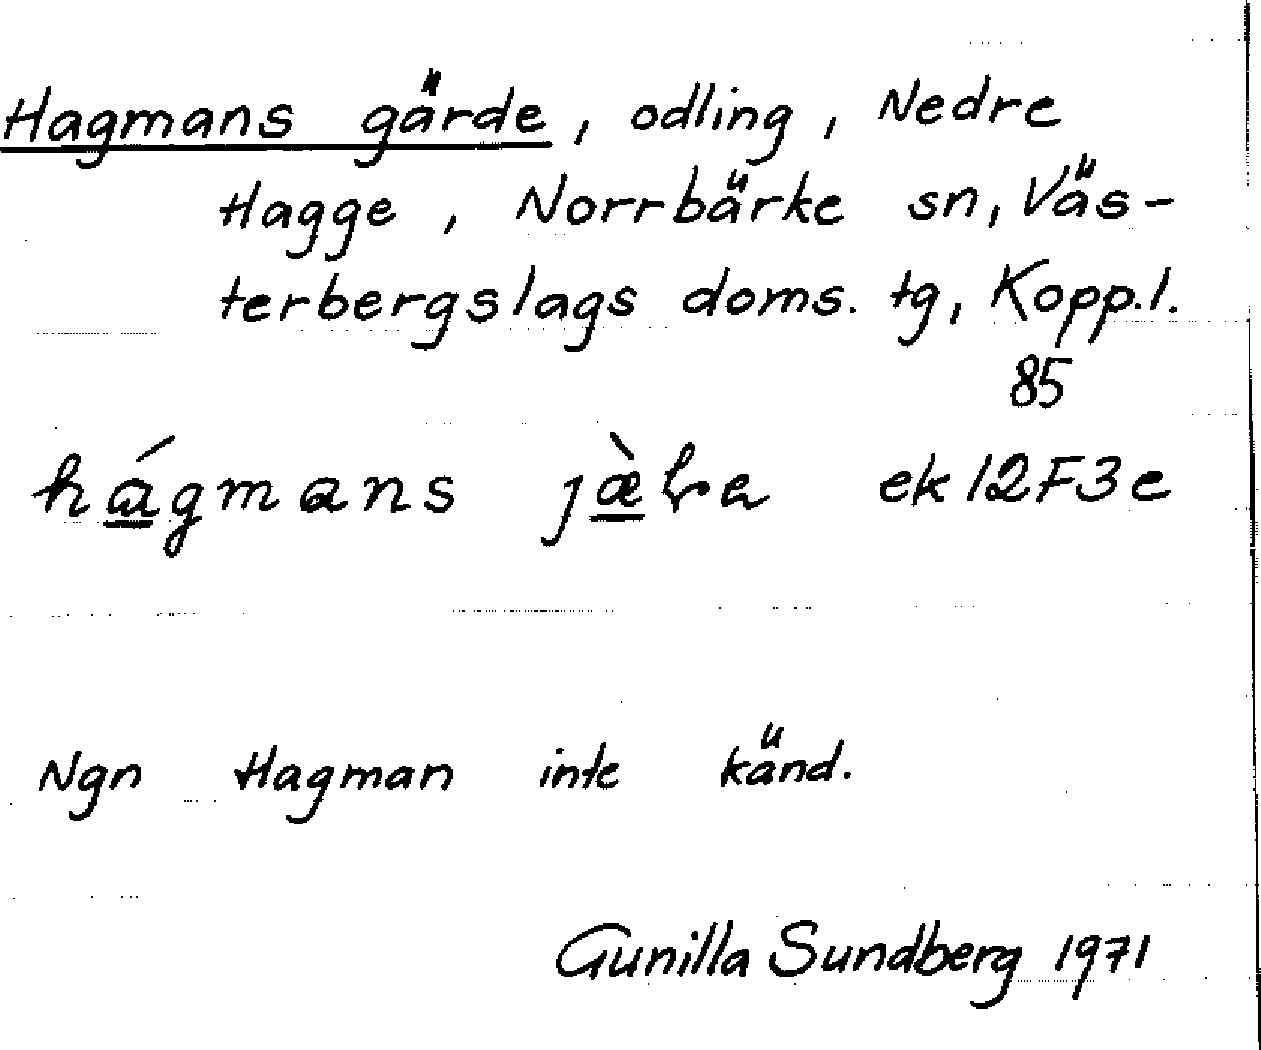 Hagmans gärde, odling, Nedre
Hagge, Norrbärke sn, Väs-
terbergslags doms. tg, Kopp.l.
85
hágmans ek 12F3e
Ngn Hagman inte känd.
Gunilla Sundberg 1971